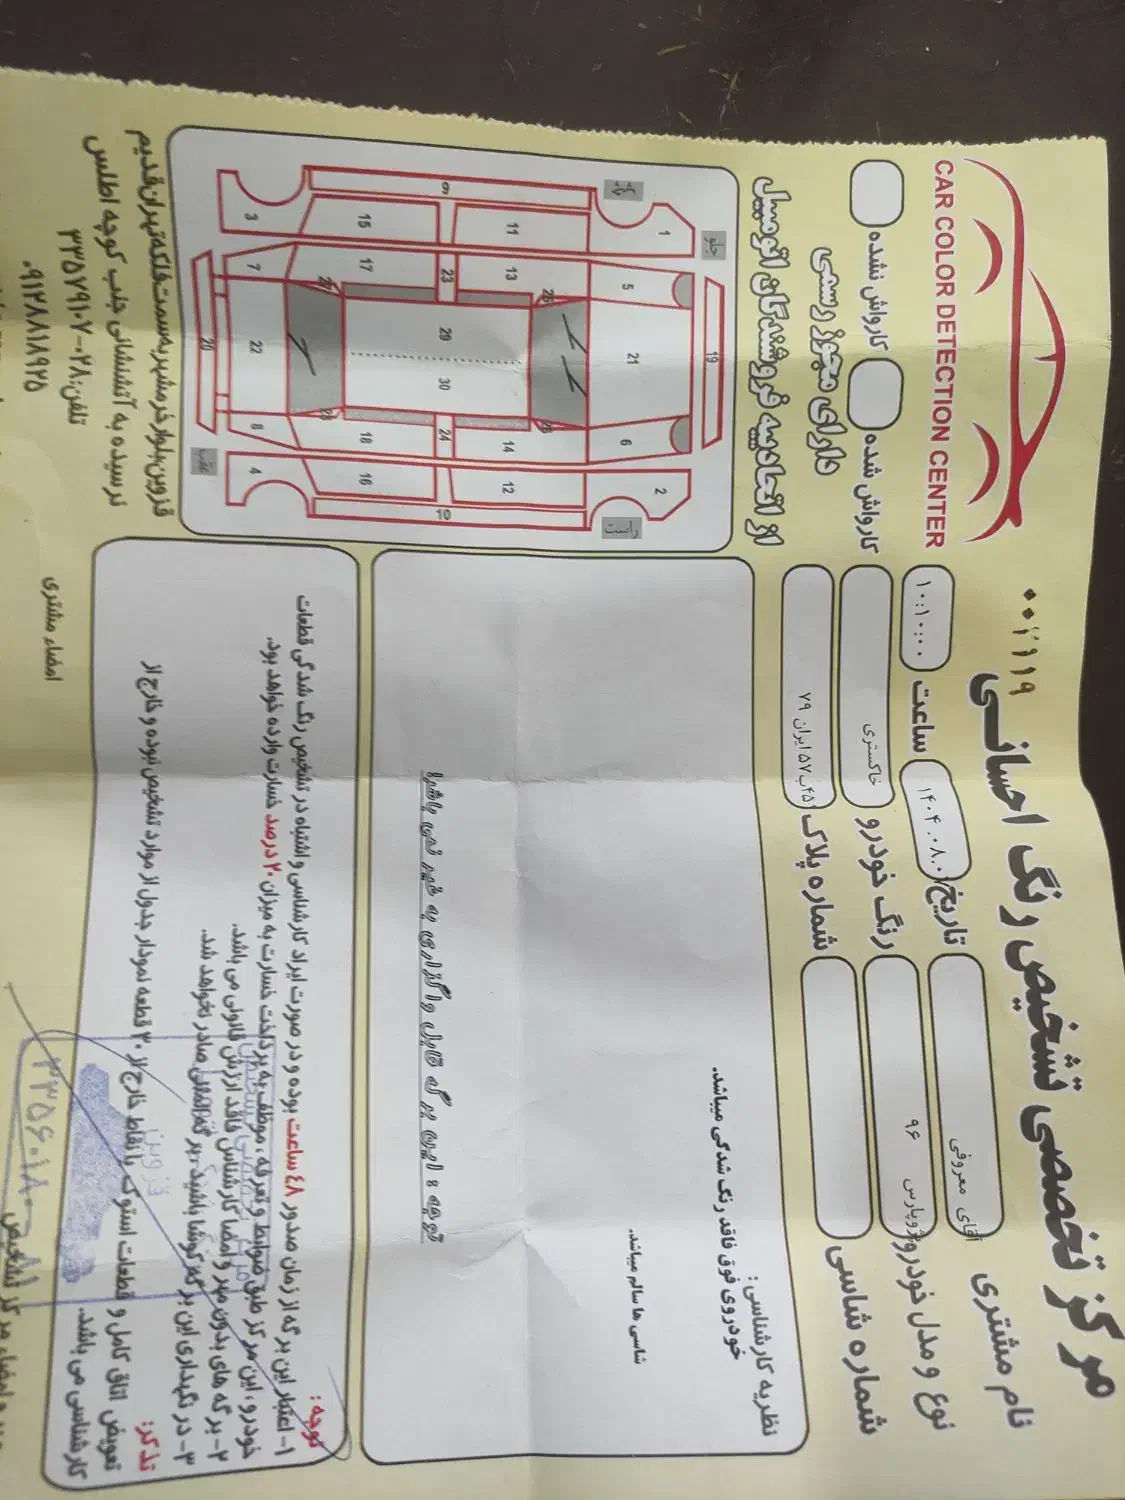 مرکز تخصصی تشخیص رنگ احسانی
CAR COLOR DETECTION CENTER
نام مشتری
آقای معروفی
تاریخ
ساعت
۱۰:۱۰:۰۰
نوع و مدل خودرو
۹۶
رنگ خودرو
خاکستری
شماره شاسی
شماره پلاک
ایران ۷۹
کارواش شده
کارواش نشده
دارای مجوز رسمی
از اتحادیه فروشندگان اتومبیل
نظریه کارشناسی :
خودروی فوق فاقد رنگ شدگی میباشد.
شاسی ها سالم میباشد.
توجه : این برگه قابل واگذاری به غیر نمی باشد!
جلو
چپ
راست
عقب
1
2
3
4
5
6
7
8
9
10
11
12
13
14
15
16
17
18
19
20
21
22
23
24
29
30
توجه :
۱- اعتبار این برگه از زمان صدور ۴۸ ساعت بوده و در صورت ایراد کارشناسی و اشتباه در تشخیص رنگ شدگی قطعات
خودرو، این مرکز طبق ضوابط و تعرفه، موظف به پرداخت خسارت به میزان ۲۰ درصد خسارت وارده خواهد بود.
۲- برگه های بدون مهر و امضا کارشناس فاقد ارزش قانونی می باشد.
۳- در نگهداری این برگه کوشا باشید، برگه المثنی صادر نخواهد شد.
تذکر:
تعویض اتاق کامل و قطعات استوک یا نقاط خارج از ۳۰ قطعه نمودار جدول از موارد تشخیص نبوده و خارج از
کارشناسی می باشد.
قزوین بلوار خرمشهر به سمت فلکه تهران قدیم
نرسیده به آتشنشانی جنب کوچه اطلس
تلفن: ۰۲۸-۳۳۵۷۹۱۰۷
۰۹۱۲۸۸۱۸۹۲۵
امضاء مشتری